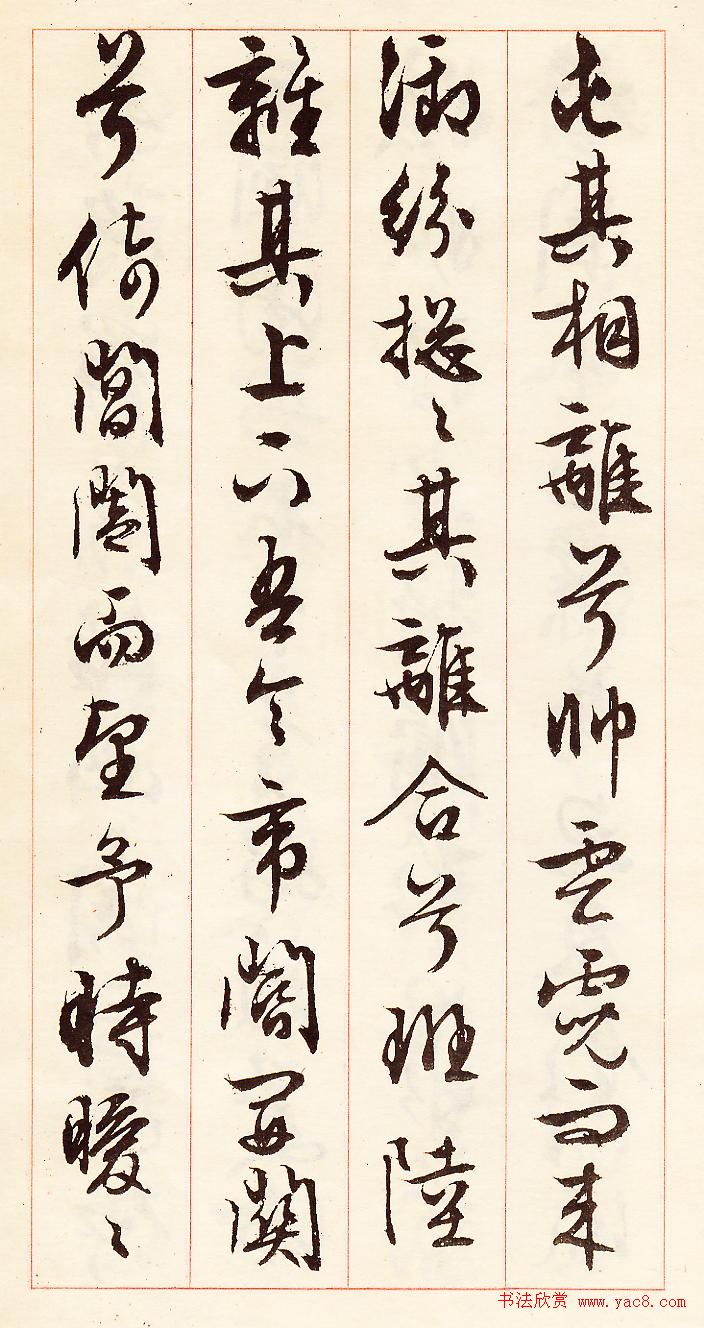 屯其相離兮帥雲霓而來
御紛揔〻其離合兮班陸
離其上下吾令帝閽開關
兮倚閶闔而望予時曖〻
书法欣赏 www.yac8.com